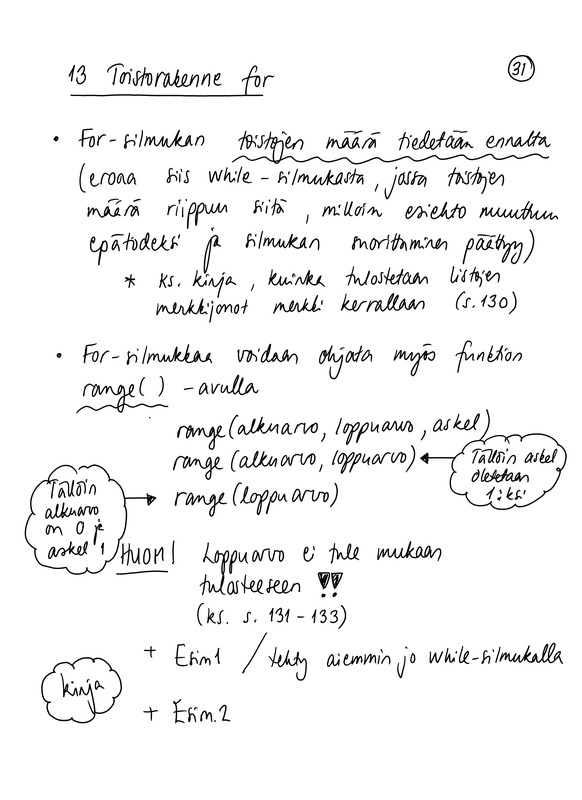 13 Toistorakenne for
31
• For-silmukan toistojen määrä tiedetään ennalta
(eroaa siis while-silmukasta, jossa toistojen
määrä riippuu siitä, milloin esiehto muuttuu
epätodeksi ja silmukan suorittaminen päättyy)
* ks. kirja, kuinka tulostetaan listojen
merkkijonot merkki kerrallaan (s.130)
• For-silmukkaa voidaan ohjata myös funktion
range( ) -avulla
range(alkuarvo, loppuarvo, askel)
range(alkuarvo, loppuarvo)
Tällöin askel
oletetaan
1:ksi
range(loppuarvo)
Tällöin
alkuarvo
on 0 ja
askel 1
HUOM! Loppuarvo ei tule mukaan
tulosteeseen !!
(ks. s. 131-133)
+ Esim1 / tehty aiemmin jo while-silmukalla
kirja
+ Esim.2